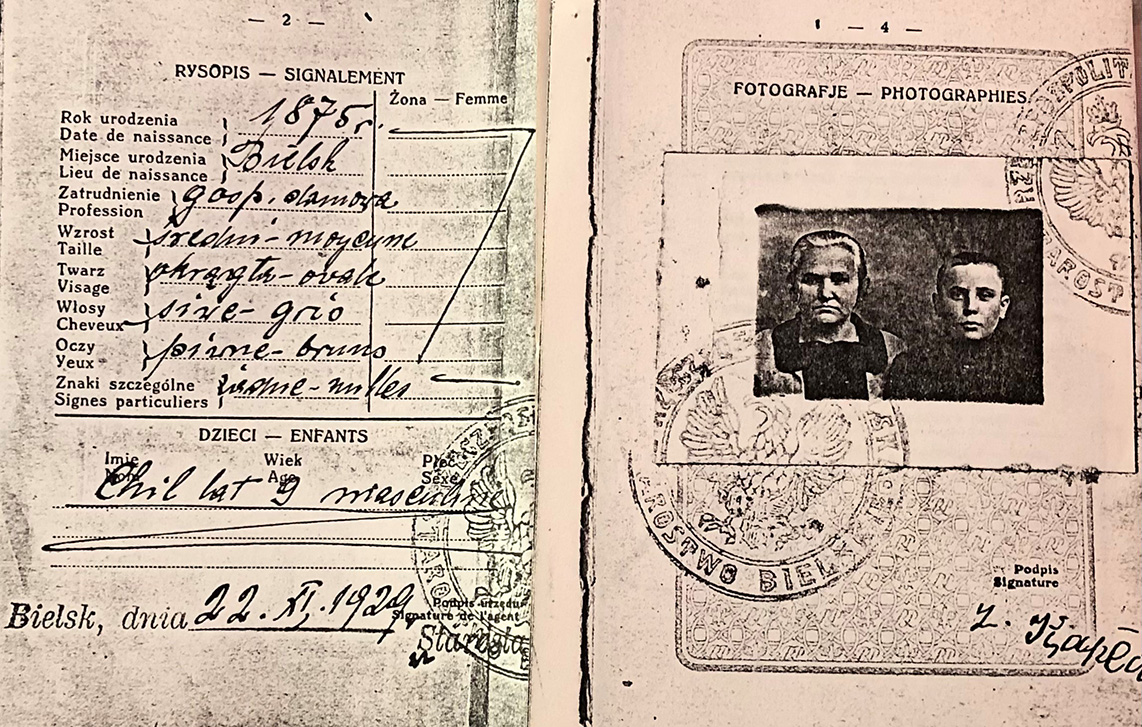 — 2 —
RYSOPIS — SIGNALEMENT
Żona — Femme
Rok urodzenia
Date de naissance
1875 r.
Miejsce urodzenia
Lieu de naissance
Bielsk
Zatrudnienie
Profession
gosp. domowa
Wzrost
Taille
średni - moyenne
Twarz
Visage
okrągła - ovale
Włosy
Cheveux
siwe - gris
Oczy
Yeux
piwne - bruns
Znaki szczególne
Signes particuliers
żadne - nulles
DZIECI — ENFANTS
Imię Wiek Płeć
Nom Age Sexe
Chil lat 9 masculine
Bielsk, dnia 22. XI. 1929
Podpis urzędu
Signature de l'agent
Starosta
— 4 —
FOTOGRAFJE — PHOTOGRAPHIES
STAROSTWO BIELSKIE
Podpis
Signature